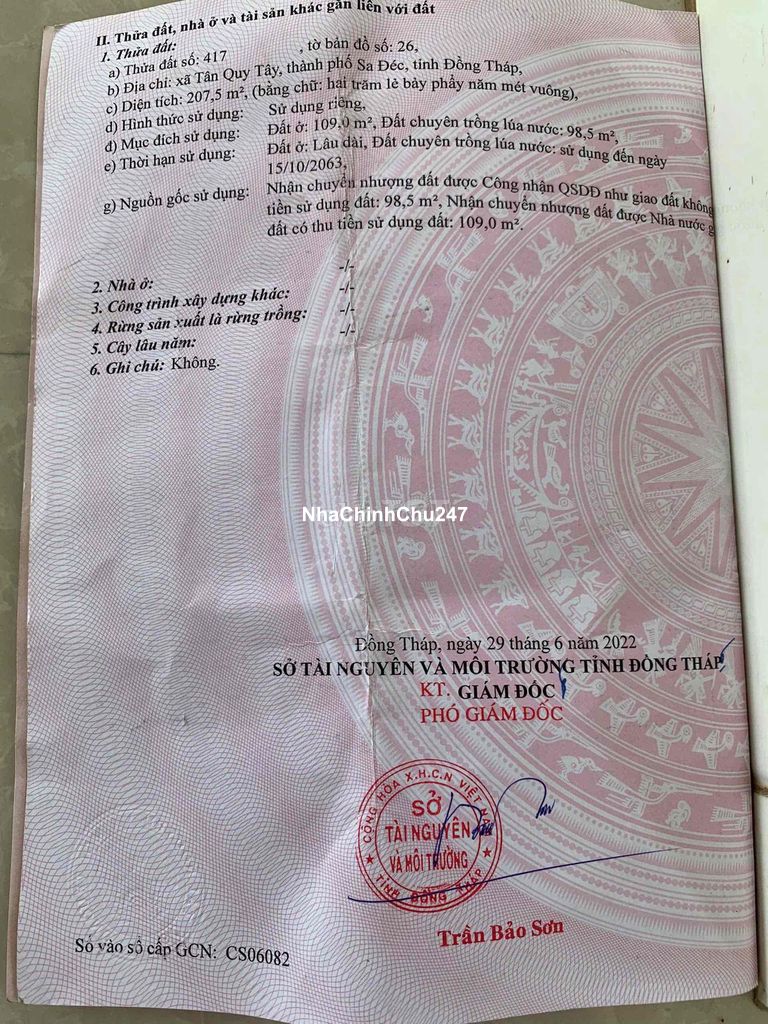 II. Thửa đất, nhà ở và tài sản khác gắn liền với đất
1. Thửa đất:
a) Thửa đất số: 417 , tờ bản đồ số: 26,
b) Địa chỉ: xã Tân Quy Tây, thành phố Sa Đéc, tỉnh Đồng Tháp,
c) Diện tích: 207,5 m², (bằng chữ: hai trăm lẻ bảy phẩy năm mét vuông),
d) Hình thức sử dụng: Sử dụng riêng,
đ) Mục đích sử dụng: Đất ở: 109,0 m², Đất chuyên trồng lúa nước: 98,5 m²,
e) Thời hạn sử dụng: Đất ở: Lâu dài, Đất chuyên trồng lúa nước: sử dụng đến ngày
15/10/2063,
g) Nguồn gốc sử dụng: Nhận chuyển nhượng đất được Công nhận QSDĐ như giao đất không
tiền sử dụng đất: 98,5 m², Nhận chuyển nhượng đất được Nhà nước g
đất có thu tiền sử dụng đất: 109,0 m².
2. Nhà ở: -/-
3. Công trình xây dựng khác: -/-
4. Rừng sản xuất là rừng trồng: -/-
5. Cây lâu năm: -/-
6. Ghi chú: Không.
NhaChinhChu247
Đồng Tháp, ngày 29 tháng 6 năm 2022
SỞ TÀI NGUYÊN VÀ MÔI TRƯỜNG TỈNH ĐỒNG THÁP
KT. GIÁM ĐỐC
PHÓ GIÁM ĐỐC
CỘNG HÒA X.H.C.N VIỆT NAM
SỞ
TÀI NGUYÊN
VÀ MÔI TRƯỜNG
TỈNH ĐỒNG THÁP
Trần Bảo Sơn
Số vào sổ cấp GCN: CS06082